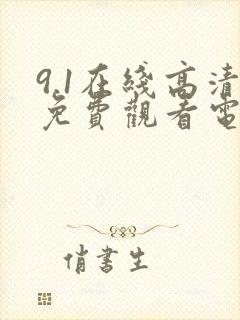 9.1在綫高清
免費觀看電
俏書生